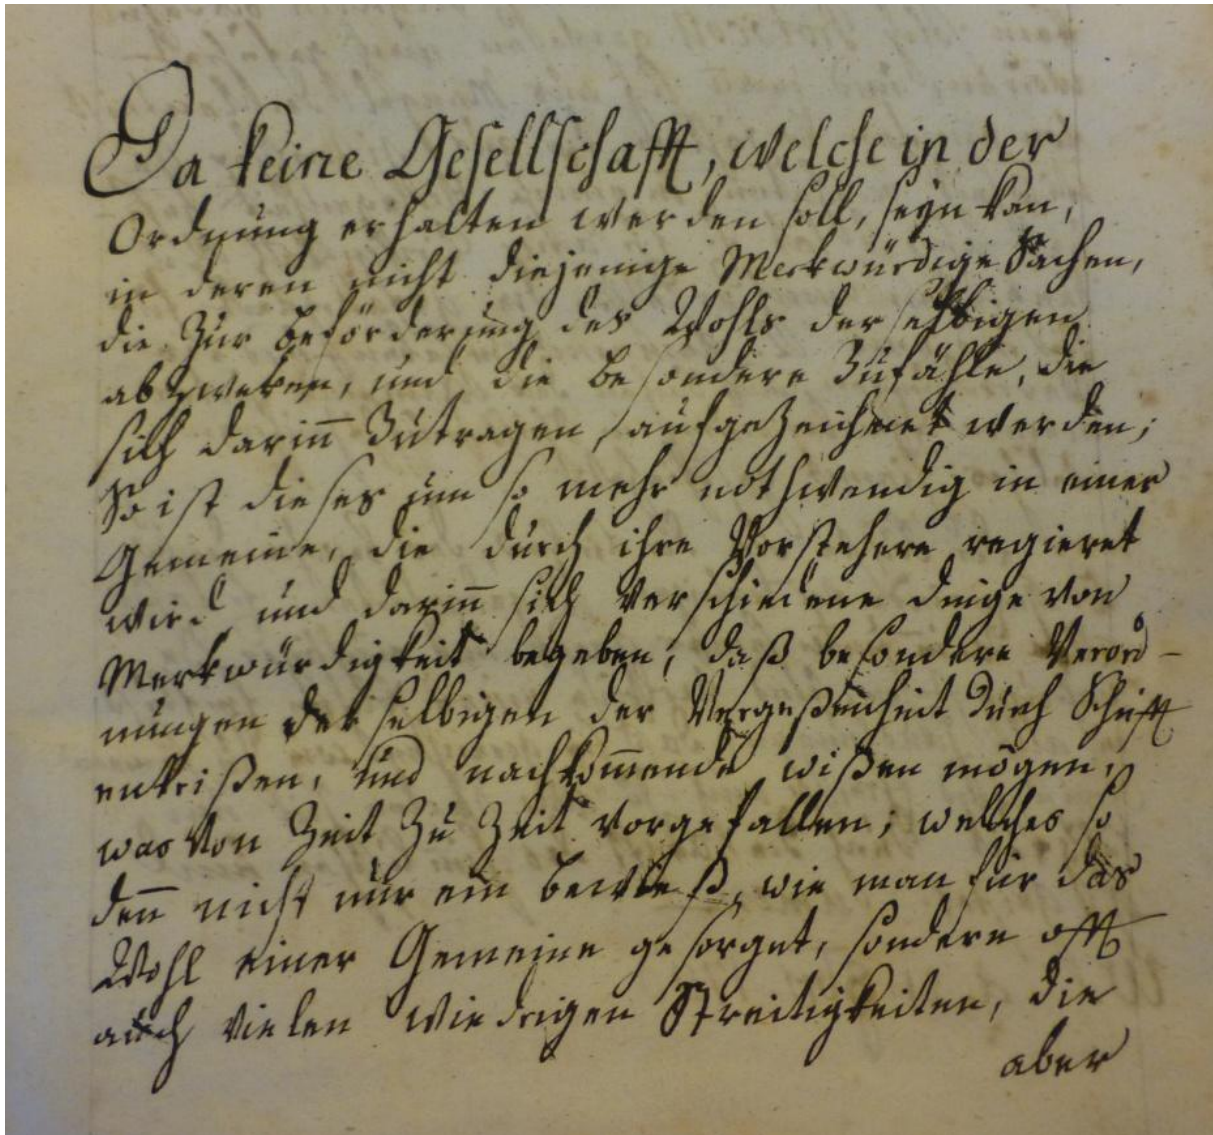 Da keine Gesellschafft, welche in der
Ordnung erhalten werden soll, seyn kan,
in deren nicht diejenige Merkwürdige Sachen,
die zur Beförderung des Wohls derselbigen
abzweken, und die besondere Zufähle, die
sich darinn zutragen, aufgezeichnet werden;
So ist dieses um so mehr nothwendig in einer
Gemeine, die durch ihre Vorstehere regieret
wird und darinn sich verschiedene dinge von
Merkwürdigkeit begeben, daß besondere Verord-
nungen derselbigen der Vergeßenheit durch Schrifft
entrißen, und nachkommende wißen mögen,
was von Zeit zu Zeit vorgefallen; welches so
denn nicht nur ein beweiß, wie man für das
Wohl einer Gemeine gesorget, sondern offt
auch vielen wiedrigen Streitigkeiten, die
aber